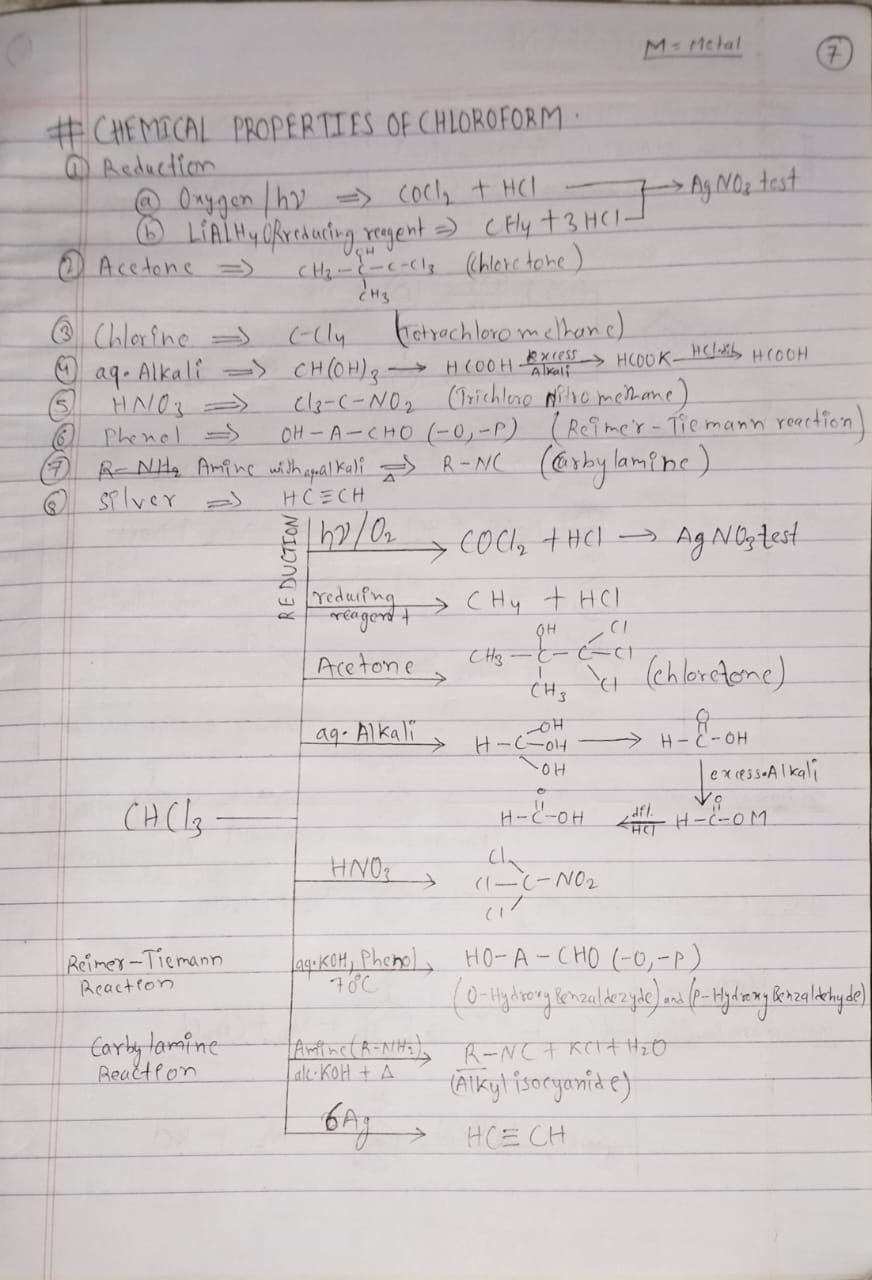 M = Metal
7
# CHEMICAL PROPERTIES OF CHLOROFORM.
① Reduction
ⓐ Oxygen/hν ⇒ COCl₂ + HCl → AgNO₃ test
ⓑ LiAlH₄ OR reducing reagent ⇒ CH₄ + 3HCl
② Acetone ⇒ CH₃-C-C-Cl₃ (chloretone)
OH
CH₃
③ Chlorine ⇒ C-Cl₄ (Tetrachloromethane)
④ aq. Alkali ⇒ CH(OH)₃ → HCOOH Excess Alkali → HCOOK HCl → HCOOH
⑤ HNO₃ ⇒ Cl₃-C-NO₂ (Trichloro Nitro methane)
⑥ Phenol ⇒ OH-A-CHO (-O, -P) (Reimer-Tiemann reaction)
⑦ R-NH₂ Amine with alkali ⇒ Δ R-NC (Carbylamine)
⑧ Silver ⇒ HC≡CH
REDUCTION
hν/O₂ → COCl₂ + HCl → AgNO₃ test
reducing reagent → CH₄ + HCl
OH Cl
Acetone → CH₃-C-C-Cl (chloretone)
CH₃ Cl
aq. Alkali → H-C-OH → H-C-OH
OH
OH
O
excess Alkali
O O
CHCl₃ H-C-OH ← dil. HCl H-C-OM
HNO₃ → Cl-C-NO₂
Cl
Cl
Reimer-Tiemann Reaction
aq. KOH, Phenol 70°C → HO-A-CHO (-O, -P)
(O-Hydroxy Benzaldezyde) and (P-Hydroxy Benzaldehyde)
Carbylamine Reaction
Amine (R-NH₂) → R-NC + KCl + H₂O
alc. KOH + Δ (Alkyl isocyanide)
6Ag → HC≡CH